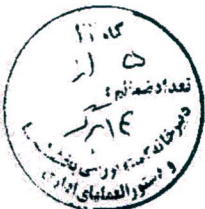 گاه
۵ از
تعداد ضمائم:
۱۴ برگ
دبیرخانه کمیته بررسی بخشنامه ها
و دستورالعملهای اداری